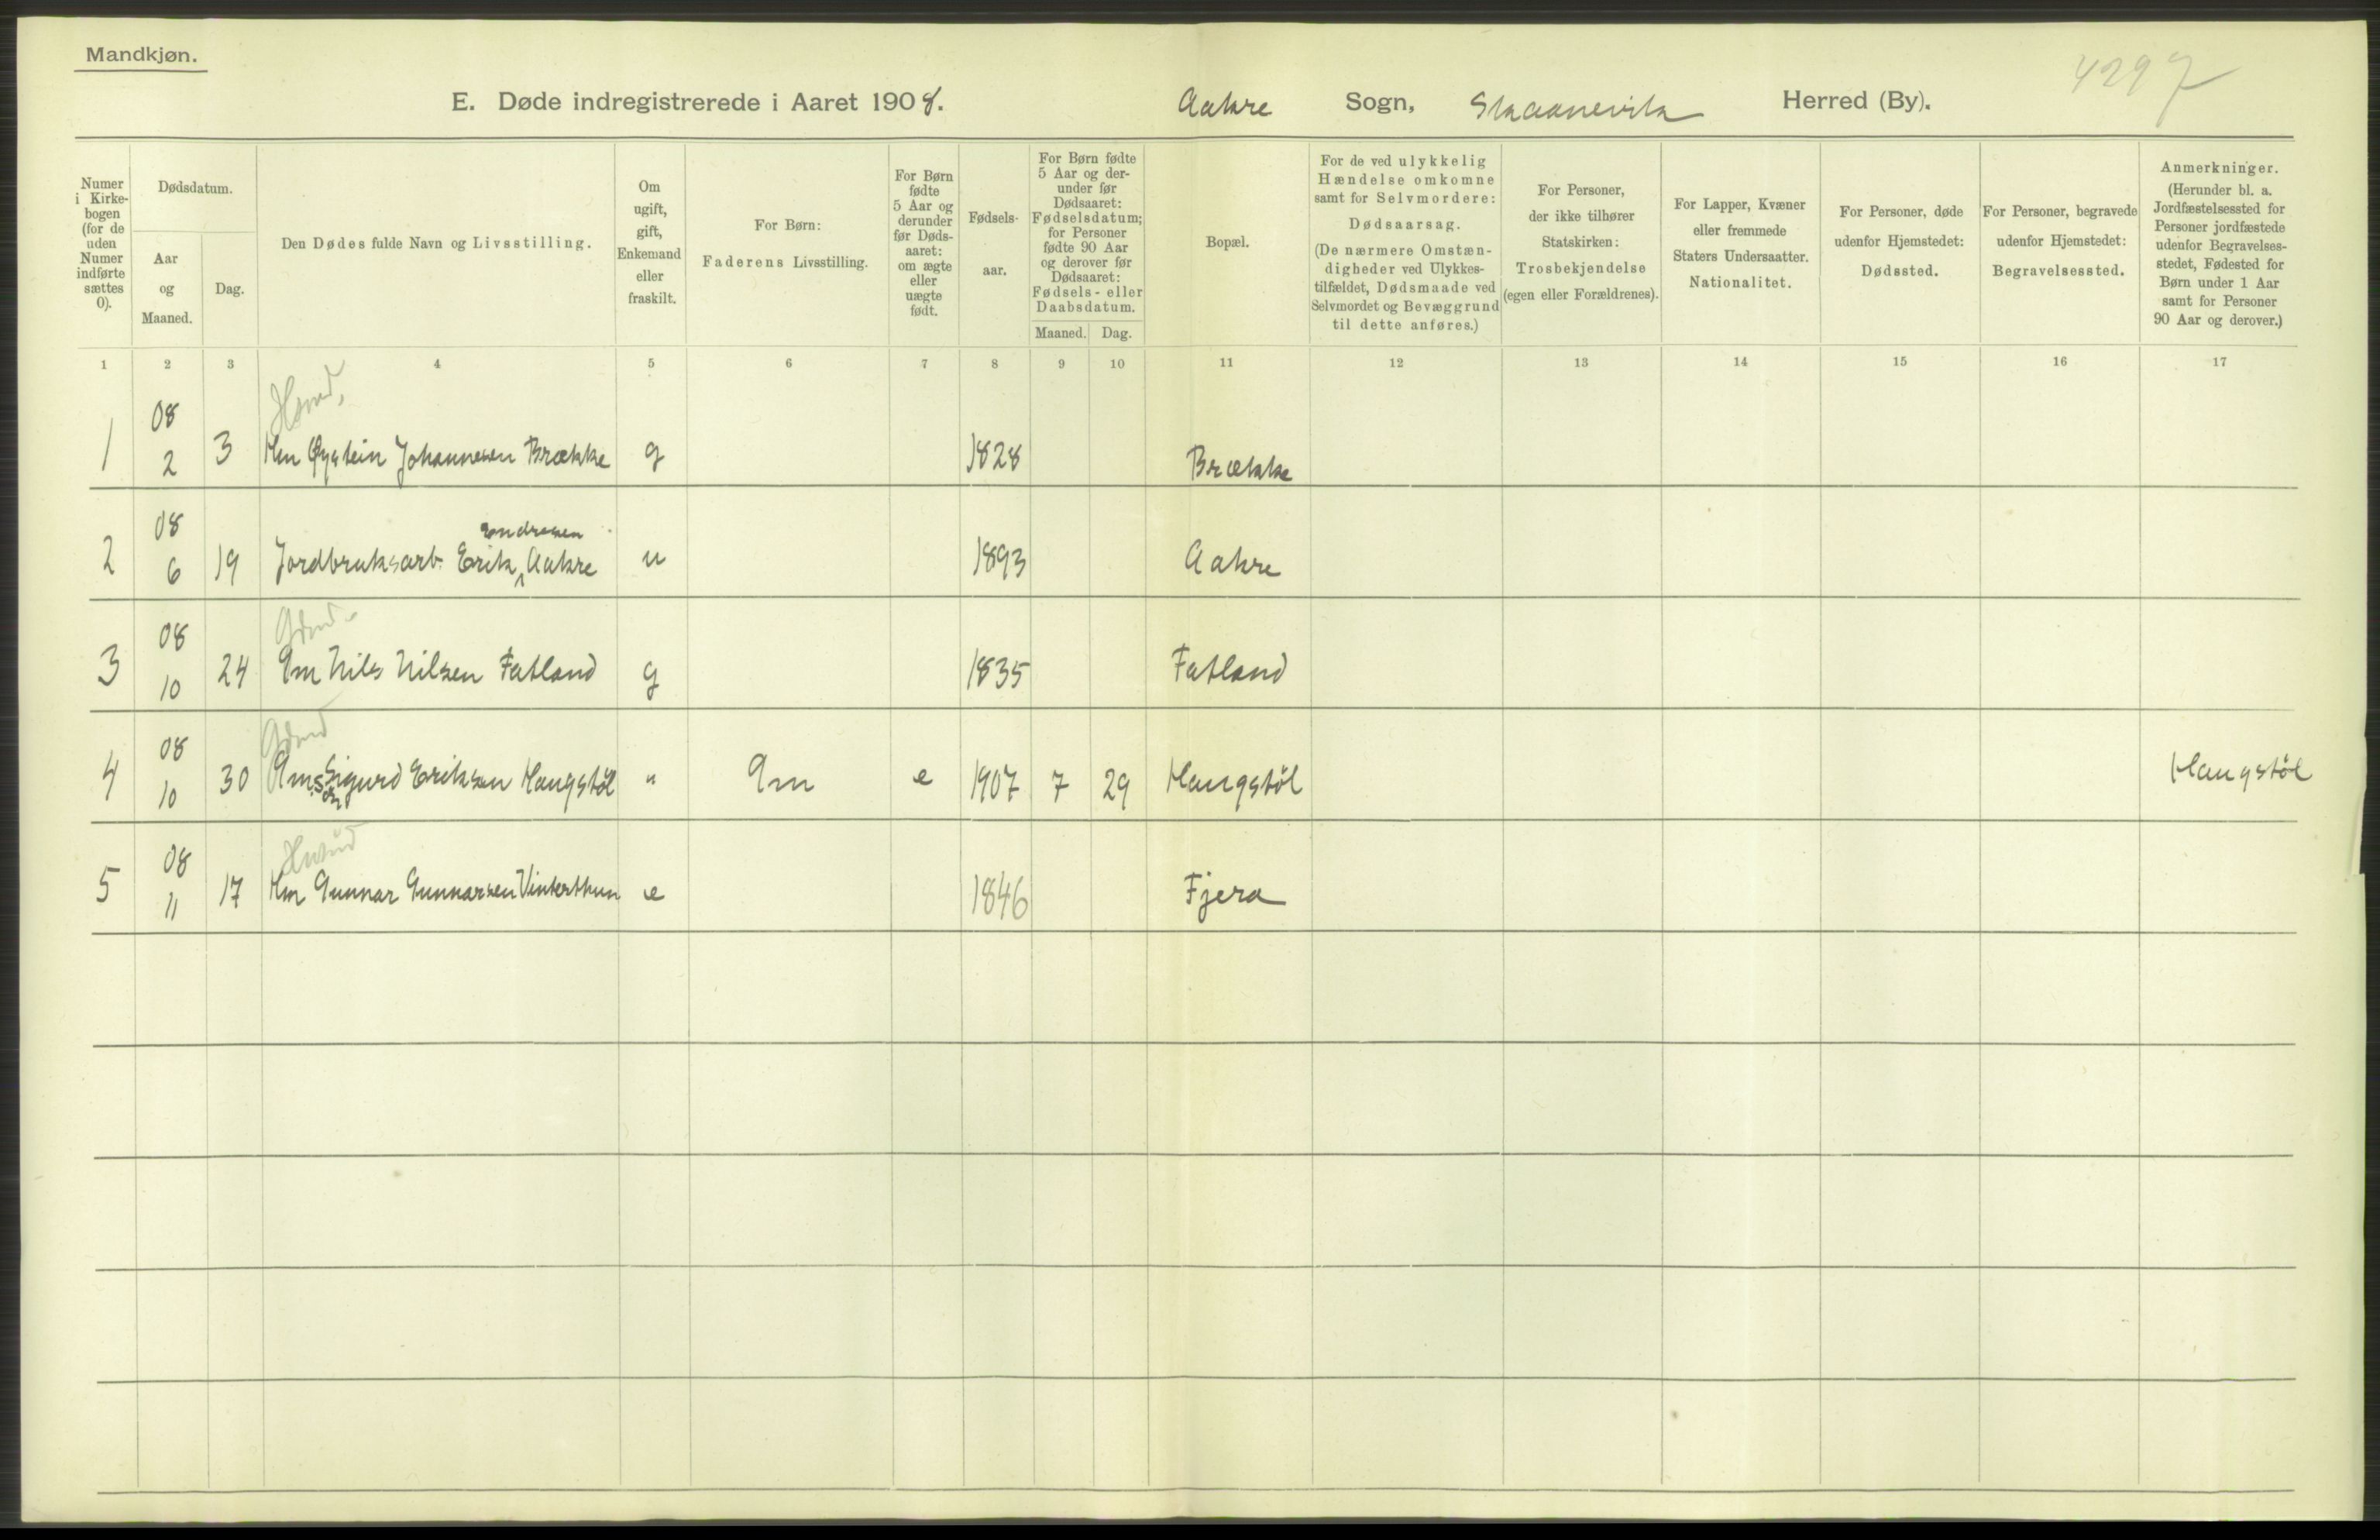 Mandkjøn.
4297
E. Døde indregistrerede i Aaret 1908. Aakre Sogn, Skaanevik Herred (By).
Numer i Kirkebogen (for de uden Numer indførte sættes 0).
Dødsdatum.
Aar og Maaned.
Dag.
Den Dødes fulde Navn og Livsstilling.
Om ugift, gift, Enkemand eller fraskilt.
For Børn: Faderens Livsstilling.
For Børn fødte 5 Aar og derunder før Dødsaaret: om ægte eller uægte født.
Fødselsaar.
For Børn fødte 5 Aar og derunder før Dødsaaret: Fødselsdatum; for Personer fødte 90 Aar og derover før Dødsaaret: Fødsels- eller Daabsdatum.
Maaned. Dag.
Bopæl.
For de ved ulykkelig Hændelse omkomne samt for Selvmordere: Dødsaarsag. (De nærmere Omstændigheder ved Ulykkestilfældet, Dødsmaade ved Selvmordet og Bevæggrund til dette anføres.)
For Personer, der ikke tilhører Statskirken: Trosbekjendelse (egen eller Forældrenes).
For Lapper, Kvæner eller fremmede Staters Undersaatter. Nationalitet.
For Personer, døde udenfor Hjemstedet: Dødssted.
For Personer, begravede udenfor Hjemstedet: Begravelsessted.
Anmerkninger. (Herunder bl. a. Jordfæstelsessted for Personer jordfæstede udenfor Begravelsesstedet, Fødested for Børn under 1 Aar samt for Personer 90 Aar og derover.)
1 2 3 4 5 6 7 8 9 10 11 12 13 14 15 16 17
08
1 2 3 Hm Øystein Johannesen Brække g 1828 Brække
08 Endresen
2 6 19 Jordbruksarb. Erik Aakre u 1893 Aakre
08
3 10 24 Gm Nils Nilsen Fatland g 1835 Fatland
08
4 10 30 Gms søn Sigurd Eriksen Haugstöl " Gm e 1907 7 29 Haugstöl Haugstöl
08
5 11 17 Hm Gunnar Gunnarsen Vinterthun e 1846 Fjera